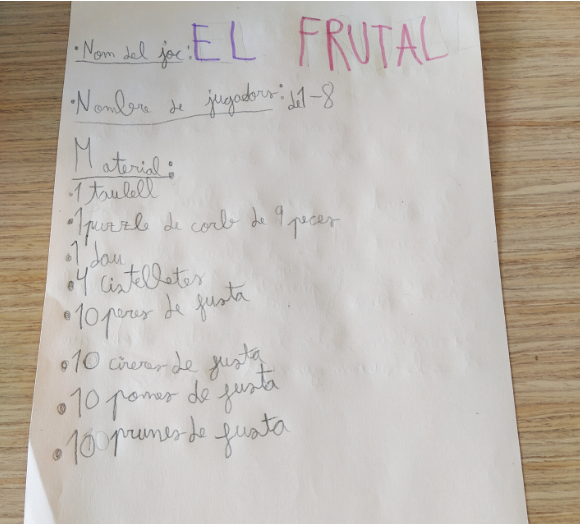 • Nom del joc: EL FRUTAL
• Nombre de jugadors: de 1-8
Material:
• 1 taulell
• 1 puzzle de corb de 9 peces
• 1 dau
• 4 cistelletes
• 10 peres de fusta
• 10 cireres de fusta
• 10 pomes de fusta
• 10 prunes de fusta